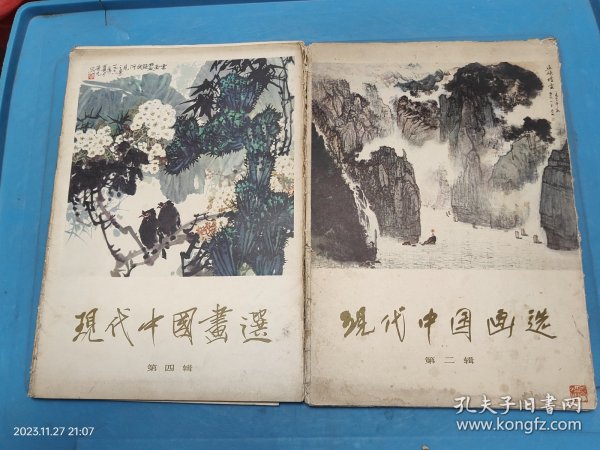 現代中國畫選
第四辑
现代中国画选
第二辑
2023.11.27 21:07
孔夫子旧书网
www.kongfz.com